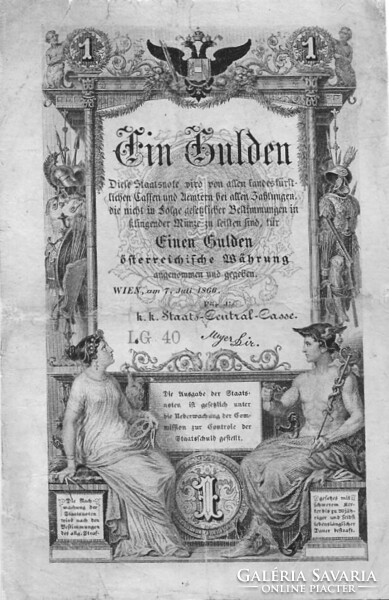 1
1
Ein Gulden
Diese Staatsnote wird von allen landesfürst-
lichen Cassen und Aemtern bei allen Zahlungen,
die nicht in Folge gesetzlicher Bestimmungen in
klingender Münze zu leisten sind, für
Einen Gulden
österreichische Währung
angenommen und gegeben.
WIEN, am 7. Juli 1866.
Für die
k. k. Staats-Central-Casse.
LG 40
Die Ausgabe der Staats-
noten ist gesetzlich unter
die Ueberwachung der Com-
mission zur Controle der
Staatsschuld gestellt.
Die Nach-
machung der
Staatsnoten
wird nach den
Bestimmungen
des allg. Straf-
gesetzes mit
schwerem Ker-
ker bis zu 20 jäh-
riger und selbst
lebenslänglicher
Dauer bestraft.
1
GALÉRIA SAVARIA
ONLINE PIACTÉR